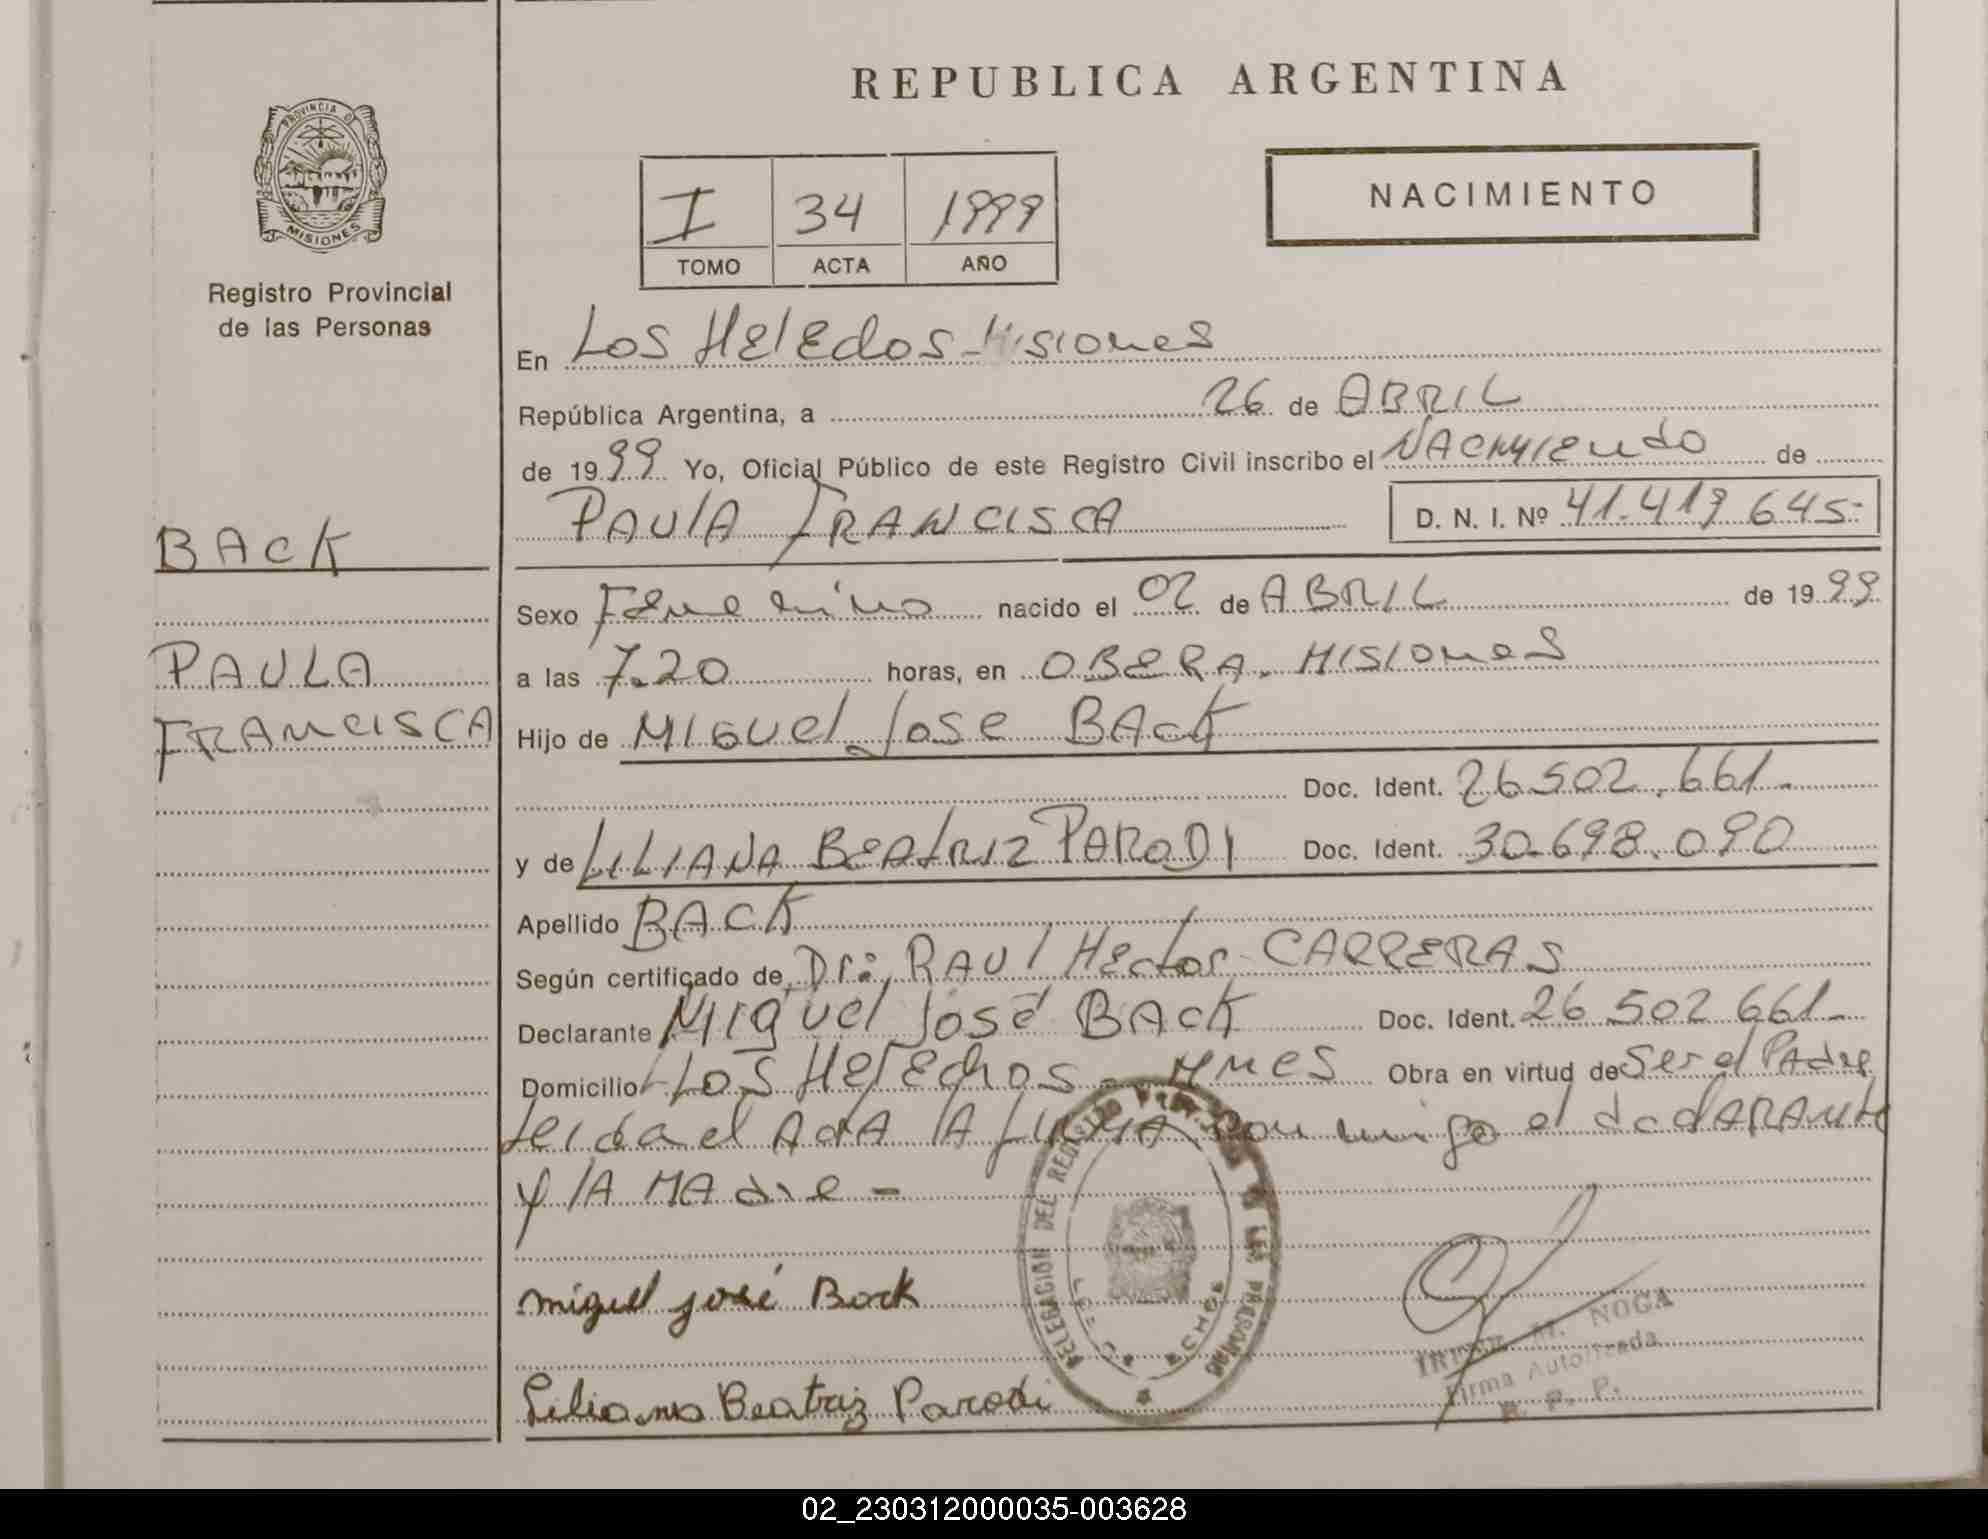 REPUBLICA ARGENTINA
PROVINCIA DE
MISIONES
Registro Provincial
de las Personas
NACIMIENTO
I 34 1999
TOMO ACTA AÑO
En Los Heledos - Misiones
República Argentina, a 26 de ABRIL
de 1999 Yo, Oficial Público de este Registro Civil inscribo el NACIMIENDO de
PAULA FRANCISCA D. N. I. Nº 41.419 645-
BACK
Sexo Femenino nacido el 02 de ABRIL de 1999
PAULA
a las 7.20 horas, en OBERA. MISIONES
FRANCISCA
Hijo de MIGUEL JOSE BACK
Doc. Ident. 26.502.661.-
y de LILIANA BEATRIZ PARODI Doc. Ident. 30.698.090
Apellido BACK
Según certificado de, Dr: RAUL Hector CARRERAS
Declarante Miguel José BACK Doc. Ident. 26 502 661-
Domicilio Los Helechos - Mnes Obra en virtud de Ser el PAdre
leida el ActA lA firmA conmigo el declARAnte
y lA MAdre -
DELEGACION DEL REGISTRO PROV. DE LAS PERSONAS
LOS HELECHOS
miguel josé Back
Liliana Beatriz Parodi
M. NOGA
Firma Autorizada
R. P. P.
02_230312000035-003628